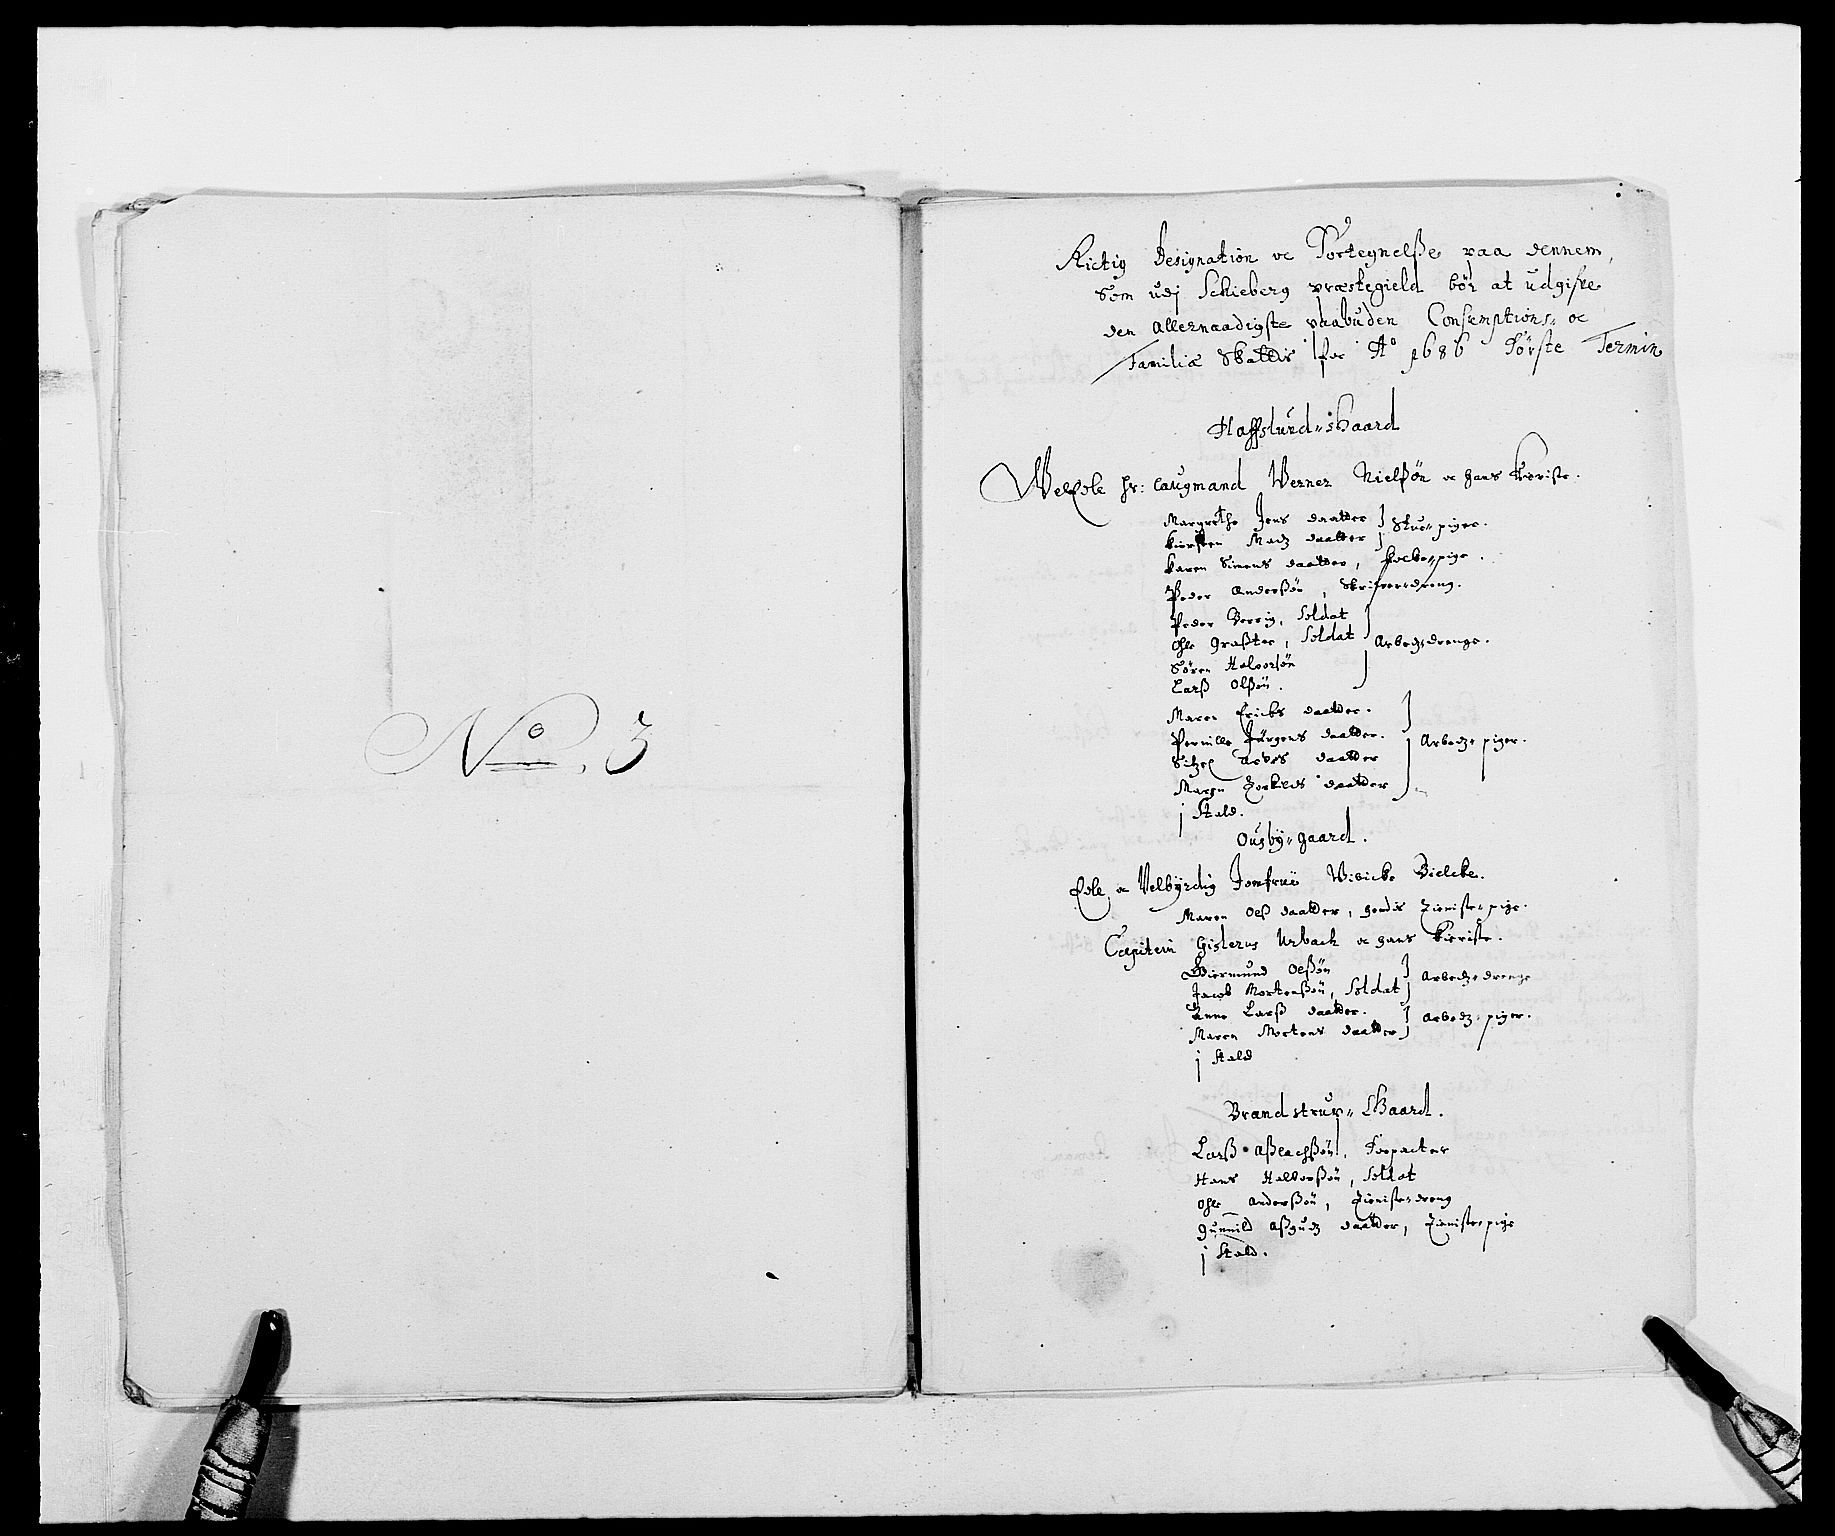 No. 3
Rictig Designation oc Fortegnelße paa dennem,
Som udj Schieberg præstegield bör at udgifve
den allernaadigste paabuden Consumptions- oc
Familiæ Skattis for Ao 1686 Förste Termin
Haffslund-Gaard
Welædle Hr: Laugmand Werner Nielßön oc hans Kieriste.
Margrethe Jens daatter } Stue-piger.
Kiersten Madz daatter }
Karen Simens daatter, Kocke-pige.
Peder Anderßön, Skrifver-dreng.
Peder Verrig, Soldat
Ole Graßter, Soldat } Arbedz-drenge.
Sören Halvorsön
Larß Olßön.
Maren Ericks daatter.
Pernille Jörgens daatter. } Arbedz-piger.
Sitzel daatter
Maren Torkilds daatter
j Stald.
Ousby-gaard.
Edle oc Velbyrdig Jomfrue Wivicke Bielcke.
Maren Olß daatter, hendis Tieniste-pige.
Capitein Gislerus Urbach oc hans Kieriste.
Giermund Olßön } Arbedz-drenge
Jacob Mortenßön, Soldat
Anne Larß daatter. } Arbedz-piger.
Maren Mortens daatter
j Stald
Brandstrup-Gaard.
Larß Aßlachßön, Forpacter
Hans Halvorßön, Soldat
Ole Anderßön, Tieniste-dreng
Gunnild Aßgudz daatter, Tieniste-pige
j Stald.